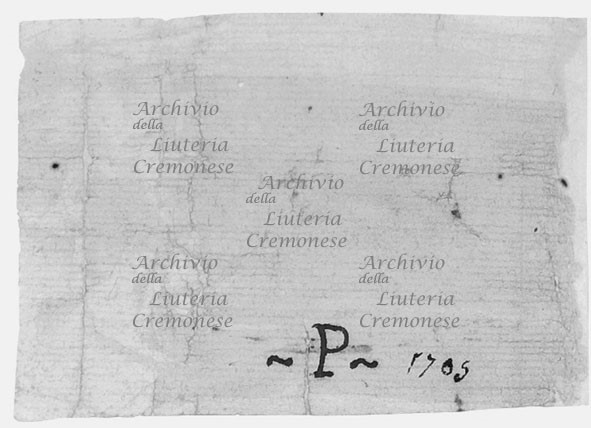 Archivio
della
Liuteria
Cremonese
Archivio
della
Liuteria
Cremonese
Archivio
della
Liuteria
Cremonese
Archivio
della
Liuteria
Cremonese
Archivio
della
Liuteria
Cremonese
~ P ~ 1705